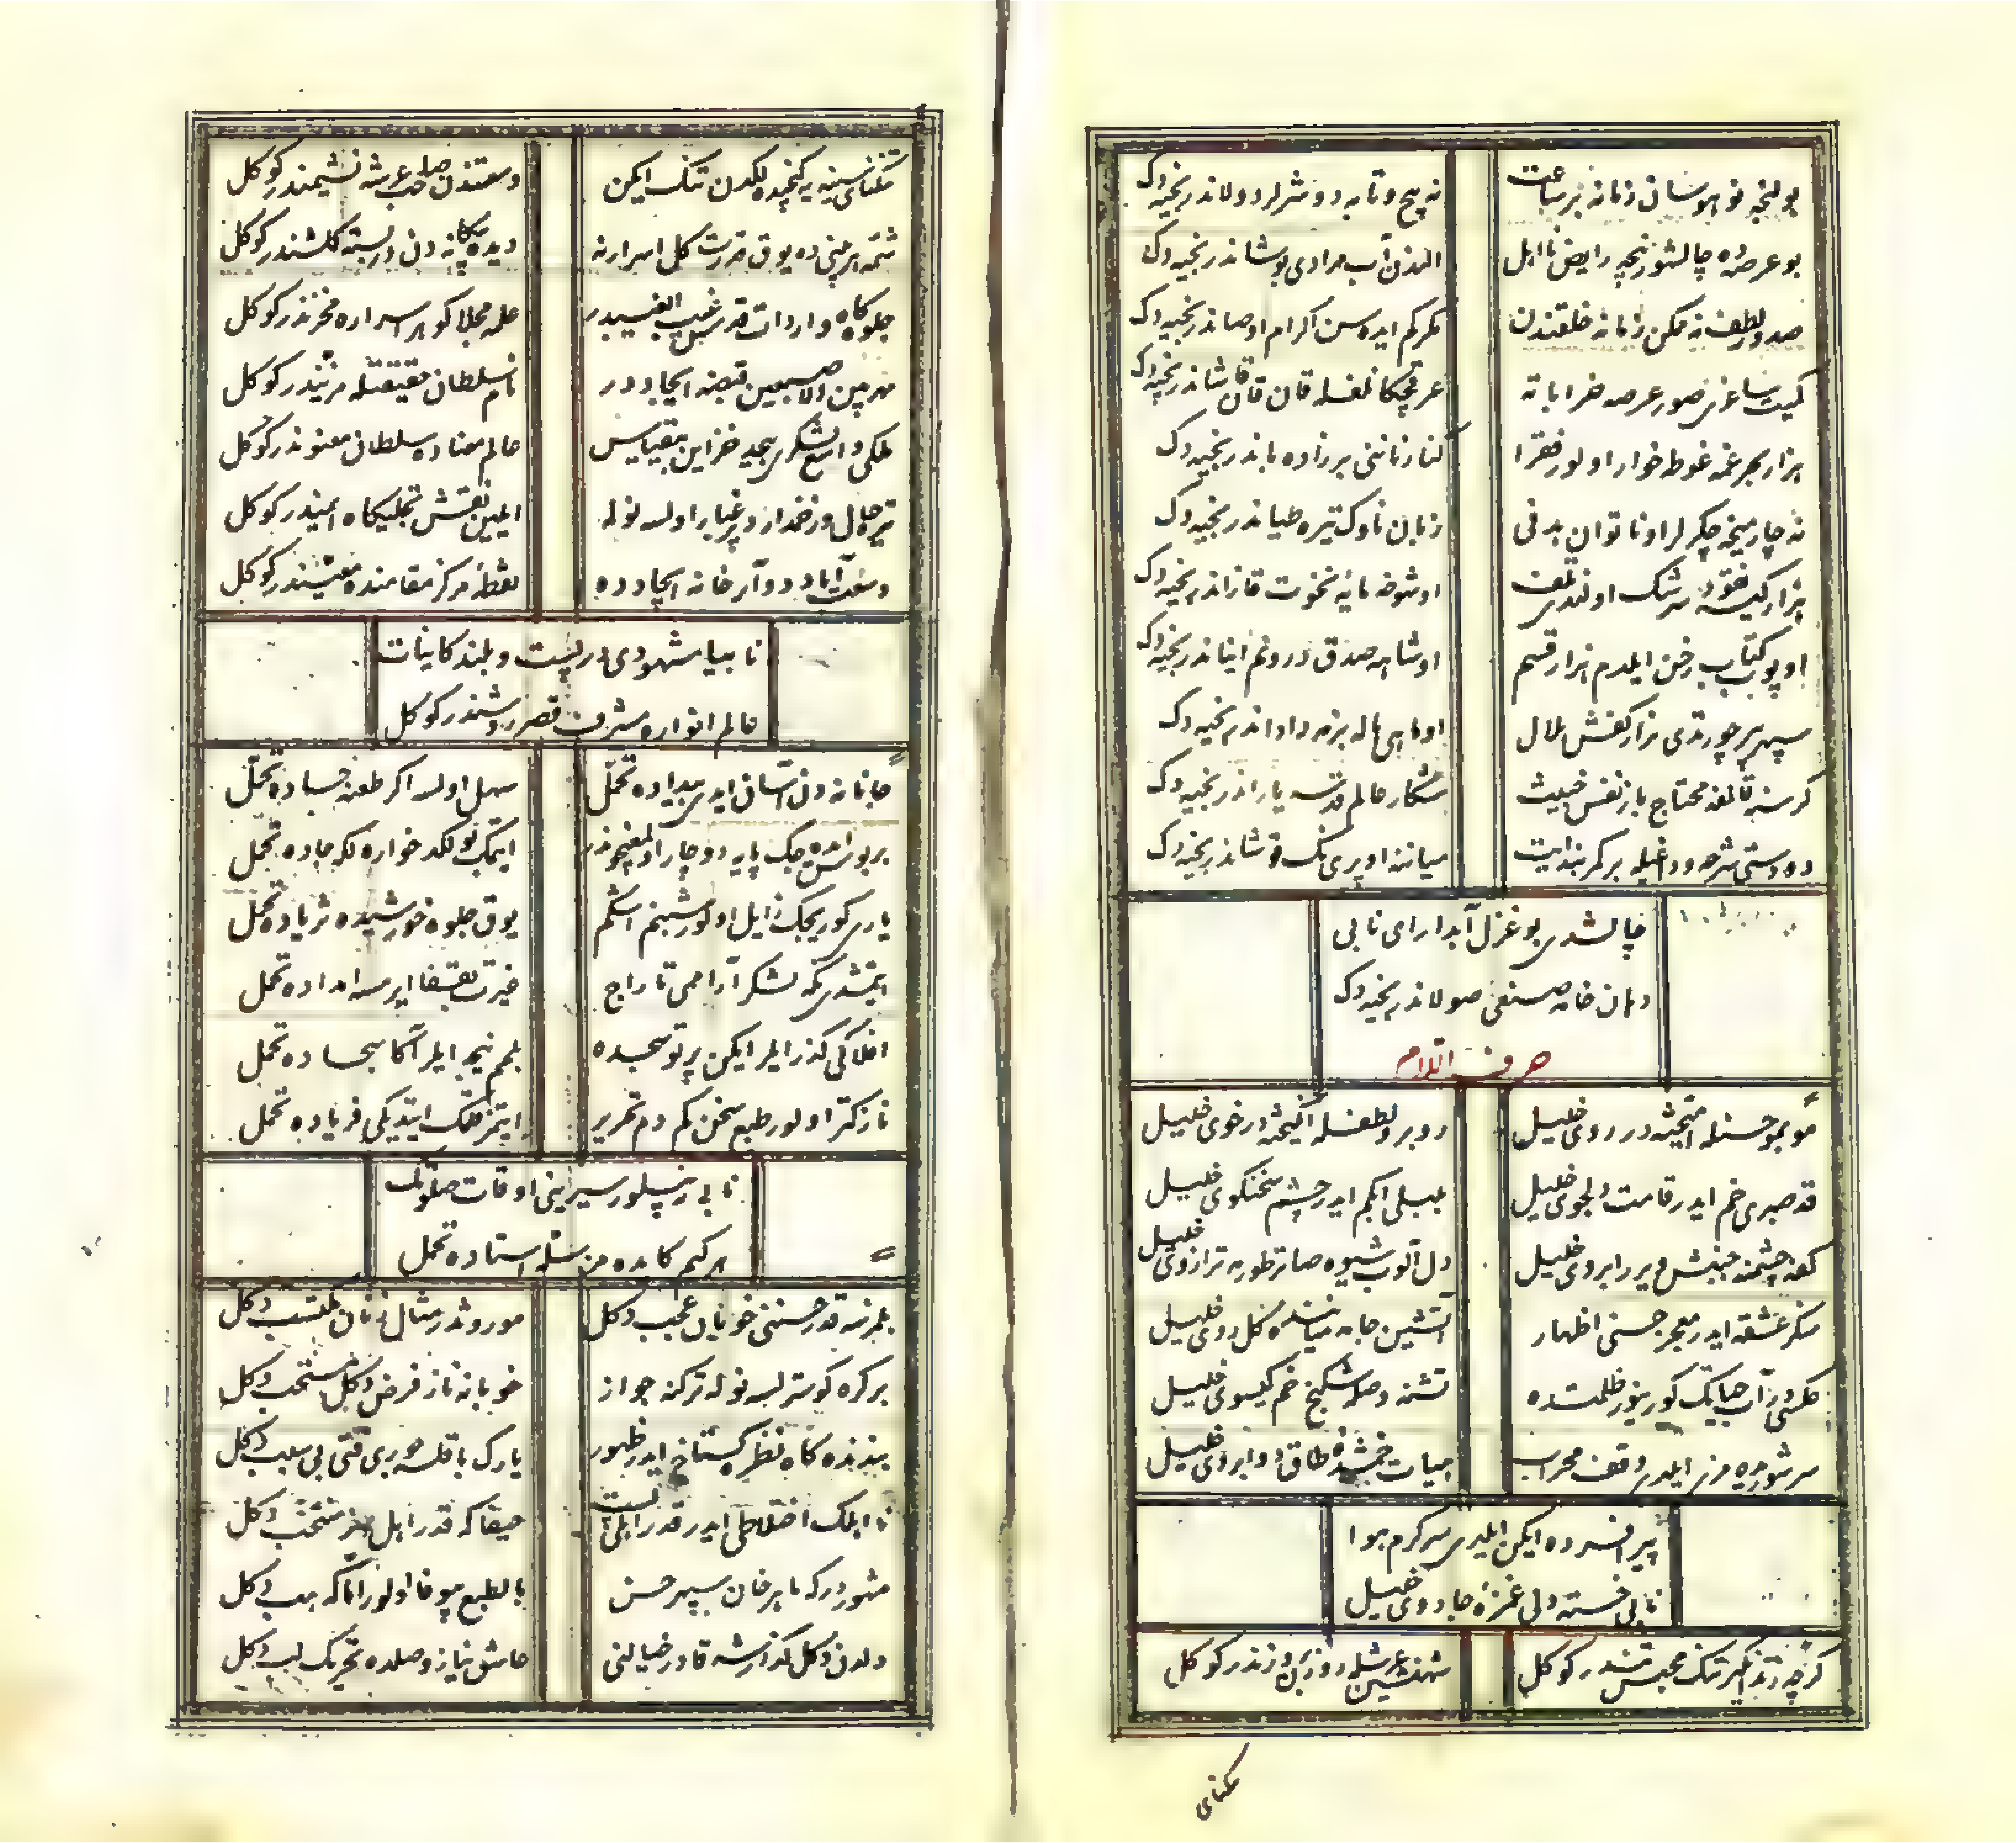 بو لنجه نو هوسان زمانه بر ساعت
نه پیچ و تابه دوشرلر دولاندر نجیه دک
بو عرصه ده چالشور نیجه رایض نا اهل
المزدن آب مرادی بوشاندر نجیه دک
صدور لطف نه ممکن زمانه خلقندن
مکرکم ایده سن اکرام اوصاندر نجیه دک
کمیت ساغری صور عرصه خراباته
هزار بحر غمه غوطه خوار اولور فقرا
کنار نانی بر زاده باندر نجیه دک
نه چار میخه چکرلر او ناتوان بدنی
زبان ناوک تیره طیاندر نجیه دک
هزار کیسه نقود سرشک اولندی تلف
او شوخ مایهٔ نخوت قزاندر نجیه دک
اوپوب کتاب رخن ایلدم هزار قسم
او شاهه صدق درونم ایناندر نجیه دک
سپهر پیر چورتدی هزار کفش هلال
او ماهی هاله بزمه داداندر نجیه دک
کرسنه قالمغه محتاج باز نفس خبیث
شکار عالم قدسه یاراندر نجیه دک
میاننه او پری نک قوشاندر نجیه دک
چالشدی بو غزل آبداره ای نابی
دهان خامه صنعی صولاندر نجیه دک
حرف اللام
موبمو حسنله آمیخته در روی خلیل
روبرو لطفله انکیخته در خوی خلیل
قد صبری خم ایدر قامت دلجوی خلیل
بلبلی ابکم ایدر چشم سخنکوی خلیل
کفه چشمنه جنبش ویرر ابروی خلیل
دل آلوب شیوه صاتر طورمه ترازوی خلیل
منکر عشقه ایدر معجز حسنی اظهار
آتشین جامه میاننده کل روی خلیل
عکسی در آب حیاتک کورینور ظلمتده
تشنه وصله شکنج خم کیسوی خلیل
سر شوریده مزی ایلدی وقف محراب
ابیات خمیده طاق دو ابروی خلیل
پیر افسرده ایکن ایلدی سرکرم هوا
نابی خسته دلی غمزهٔ جادوی خلیل
کرچه زندانکیر تنک محبس تندر کوکل
شهنشین عرشله روزن بروزندر کوکل
تنکنای
تنکنای سینه یه کنجیده لکدن تنک ایکن
وسعتندن صاحب عرشه نشیمندر کوکل
شمه ابر منی ده یوق قدرت کل اسرارنه
دیده بیکانه دن در بسته کلشندر کوکل
جلوه گاه واردات قدس غیب الغیبدر
جمله مجلا کوهر اسراره مخزندر کوکل
مهر بین الاصبعین قبضه ایجاددر
نام سلطان حقیقتله مزیندر کوکل
ملکی واسع لشکری بیحد خزاین بیقیاس
عالم معناده سلطان معنوندر کوکل
تیره حال و زخمدار و پرغبار اولسه نوله
ایلمین نقش تجلیکاه ایمندر کوکل
وسعت آباد دوآر خانه ایجادده
نقطهٔ مرکز مقامنده معیندر کوکل
نابیا مشهودی در پست و بلند کاینات
عالم انواره مشرف قصر روشندر کوکل
جانانه دن آسان ایدی بیداده تحمل
سهل اولسه اکر طعنهٔ حساده تحمل
ایتمک بو لکدخواره لکه جاده تحمل
یاری کوریجک زایل اولور شبنم اشکم
یوق جلوه خورشیده ثریاده تحمل
ایتمشدی نکه لشکر آرامی تاراج
غیرت بقیقا ایرمسه امداده تحمل
افلاکی گذر ایلر ایکن پرتو سجده
بلمم نیجه ایلر آکا سجاده تحمل
نازکتر اولور طبع سخن کم دم تحریر
ایتمز قلمک ایتدیکی فریاده تحمل
نابی نه بیلور سیرینی اوقات صلوتک
هر کیم که بده مزسه استاده تحمل
بلمز نه قدر حسننی خوبان عجب دکل
موروثدر مثال زنان مکتسب دکل
بر کره کوسترلسه نوله ترکنه جواز
خوبانه ناز فرض دکل مستحب دکل
بیننده کاه نظر کستاخ ایدر ظهور
یارک باقلسه جوری قتی بی سبب دکل
نا اهلک اختلاطی ایدر قدر اهلی پست
حیفا که قدر اهل هنر منتخب دکل
مشهوردر که ماهرخان سپهر حسن
بالطبع بیوفا اولور اما که هب دکل
دلدن دکل گذارشه قادر خیالنی
عاشق نیاز وصلده تحریک لب دکل